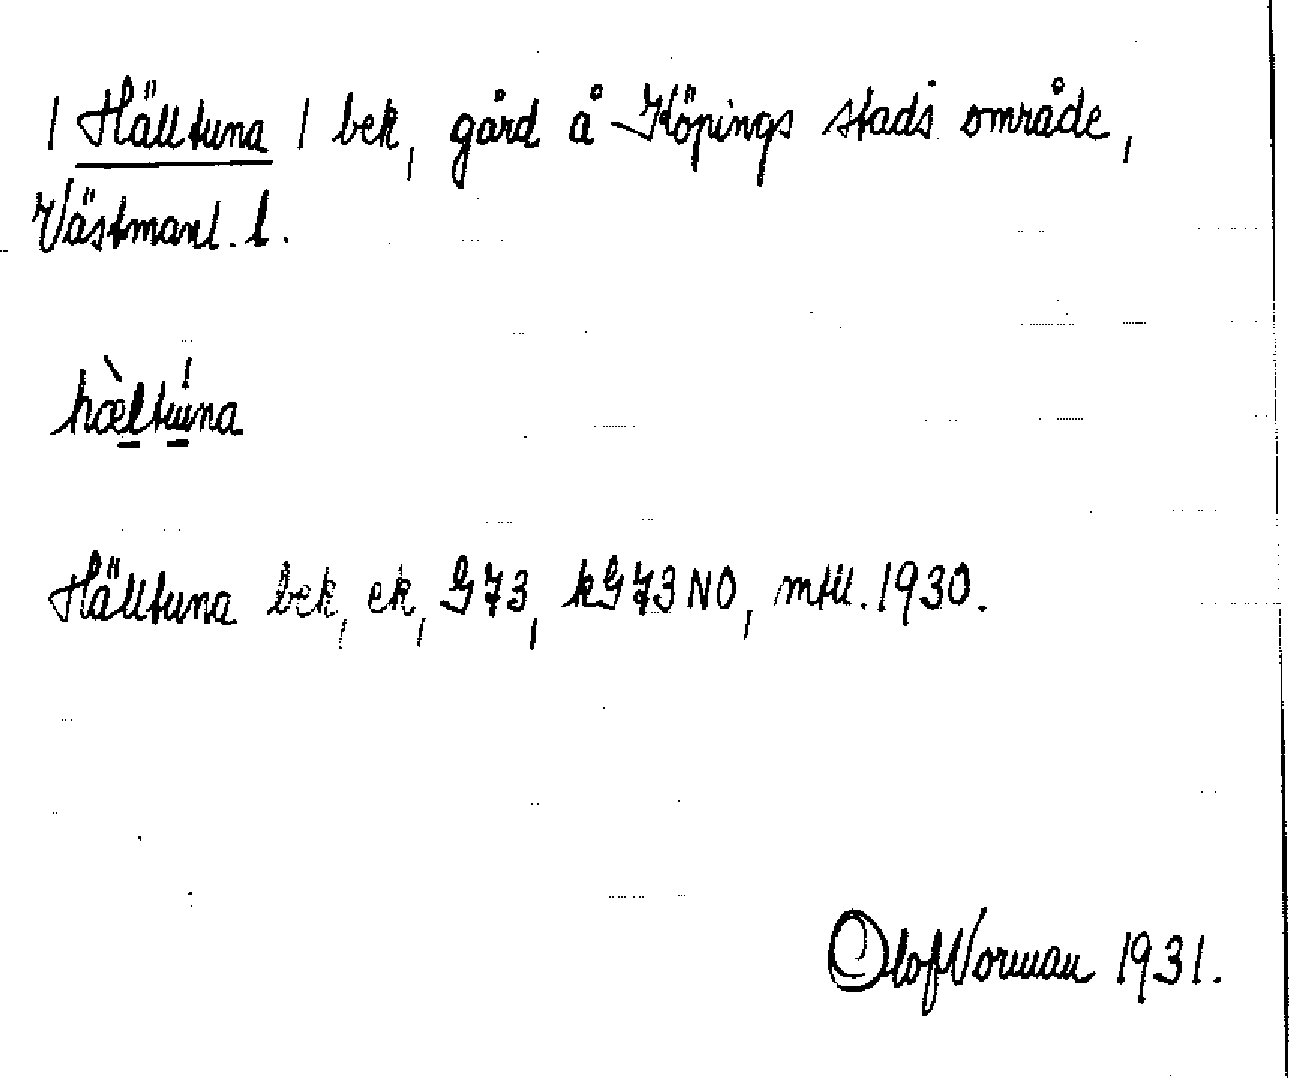 | Hälltuna | bek, gård å Köpings stads område,
Västmanl. l.
hæ̀ltúna
Hälltuna bek, ek, G73, kG73NO, mtll. 1930.
Olof Norman 1931.